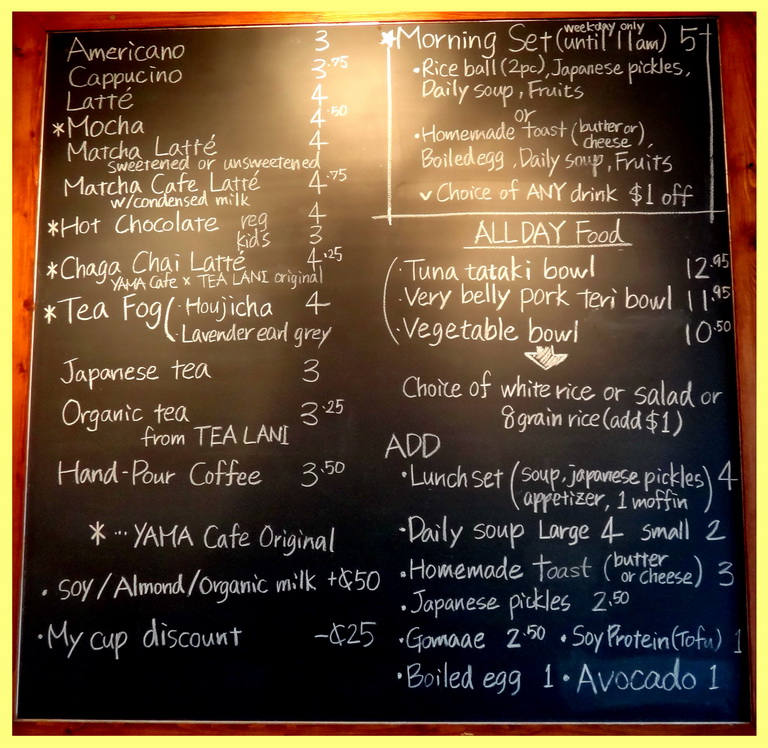 Americano 3
Cappucino 3.75
Latté 4
*Mocha 4.50
Matcha Latté 4
sweetened or unsweetened
Matcha Cafe Latté 4.75
w/condensed milk
*Hot Chocolate reg 4
kid's 3
*Chaga Chai Latté 4.25
YAMA Cafe × TEA LANI original
*Tea Fog (·Houjicha 4
·Lavender earl grey
Japanese tea 3
Organic tea 3.25
from TEA LANI
Hand-Pour Coffee 3.50
* ... YAMA Cafe Original
· Soy/Almond/Organic milk +¢50
·My cup discount -¢25
★Morning Set (weekday only until 11am) 5
·Rice ball (2pc), Japanese pickles,
Daily soup, Fruits
or
·Homemade toast (butter or cheese),
Boiled egg, Daily soup, Fruits
✓ Choice of ANY drink $1 off
ALL DAY Food
·Tuna tataki bowl 12.95
·Very belly pork teri bowl 11.95
·Vegetable bowl 10.50
Choice of white rice or salad or
8 grain rice (add $1)
ADD
·Lunch set (soup, japanese pickles) 4
appetizer, 1 moffin
·Daily soup Large 4 small 2
·Homemade toast (butter or cheese) 3
·Japanese pickles 2.50
·Gomaae 2.50 ·Soy Protein (Tofu) 1
·Boiled egg 1 ·Avocado 1